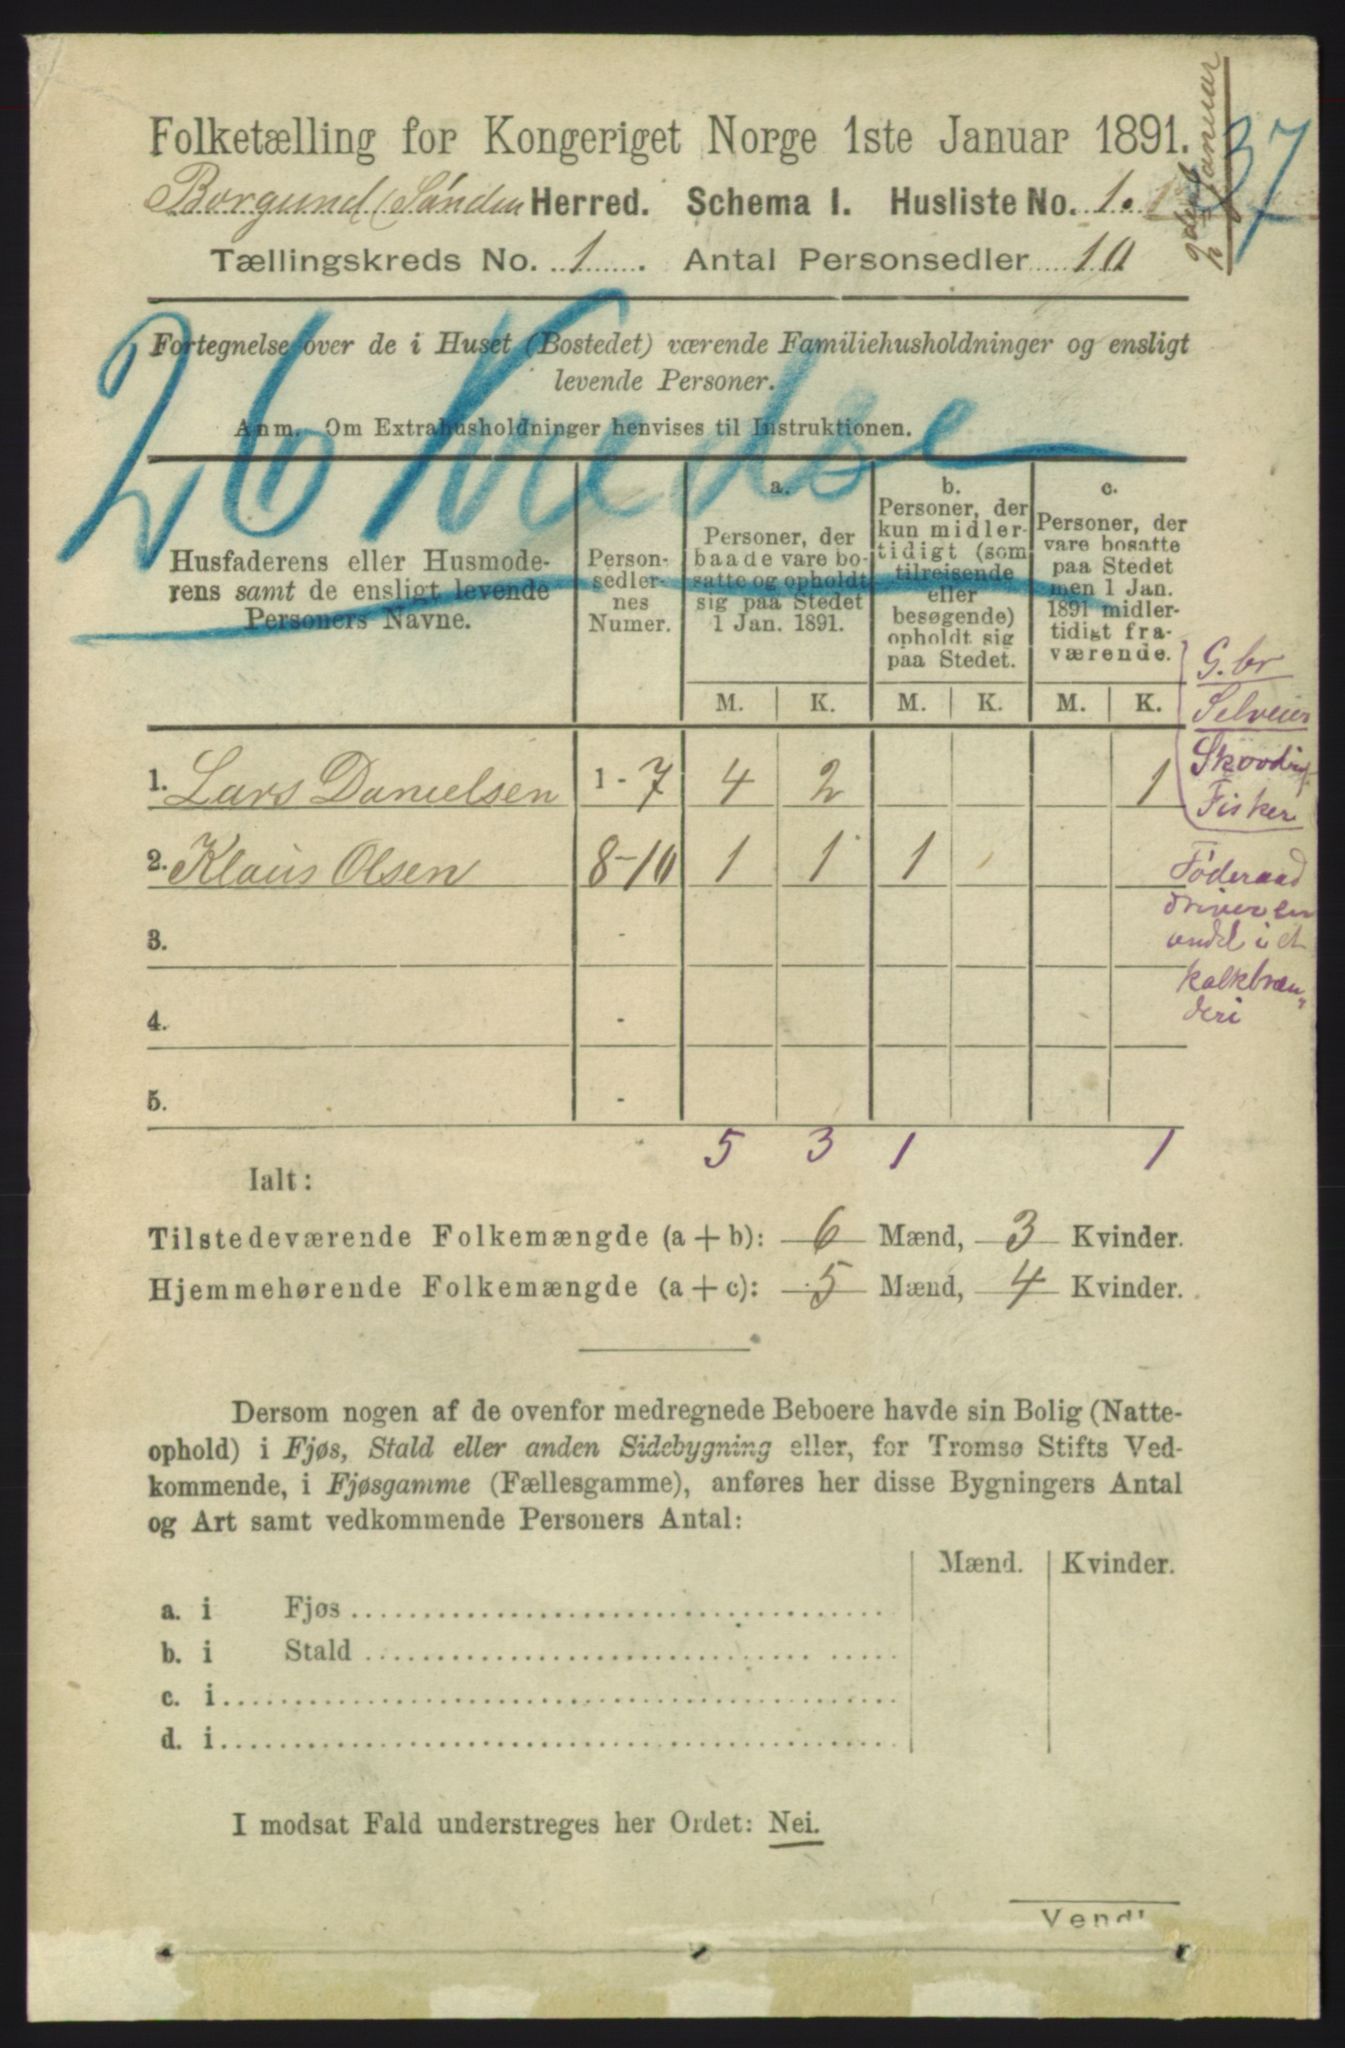 Folketælling for Kongeriget Norge 1ste Januar 1891.
37
Borgund (Søndm Herred. Schema I. Husliste No. 1.
Januar
Tællingskreds No. 1. Antal Personsedler 10
Fortegnelse over de i Huset (Bostedet) værende Familiehusholdninger og ensligt
levende Personer.
Anm. Om Extrahusholdninger henvises til Instruktionen.
26 Kredse
Husfaderens eller Husmode-
rens samt de ensligt levende
Personers Navne.
Person-
sedler-
nes
Numer.
a.
Personer, der
baade vare bo-
satte og opholdt
sig paa Stedet
1 Jan. 1891.
b.
Personer, der
kun midler-
tidigt (som
tilreisende
eller
besøgende)
opholdt sig
paa Stedet.
c.
Personer, der
vare bosatte
paa Stedet
men 1 Jan.
1891 midler-
tidigt fra-
værende.
M. K. M. K. M. K.
1. Lars Danielsen 1 - 7 4 2 1
2. Klaus Olsen 8-10 1 1 1
3. -
4. -
5. -
G. br
Selveier
Fisker
Føderaad
driver en
andel i et
kalkbræn„
deri
5 3 1 1
Ialt:
Tilstedeværende Folkemængde (a + b): 6 Mænd, 3 Kvinder.
Hjemmehørende Folkemængde (a + c): 5 Mænd, 4 Kvinder.
Dersom nogen af de ovenfor medregnede Beboere havde sin Bolig (Natte-
ophold) i Fjøs, Stald eller anden Sidebygning eller, for Tromsø Stifts Ved-
kommende, i Fjøsgamme (Fællesgamme), anføres her disse Bygningers Antal
og Art samt vedkommende Personers Antal:
Mænd. Kvinder.
a. i Fjøs
b. i Stald
c. i
d. i
I modsat Fald understreges her Ordet: Nei.
Vend!